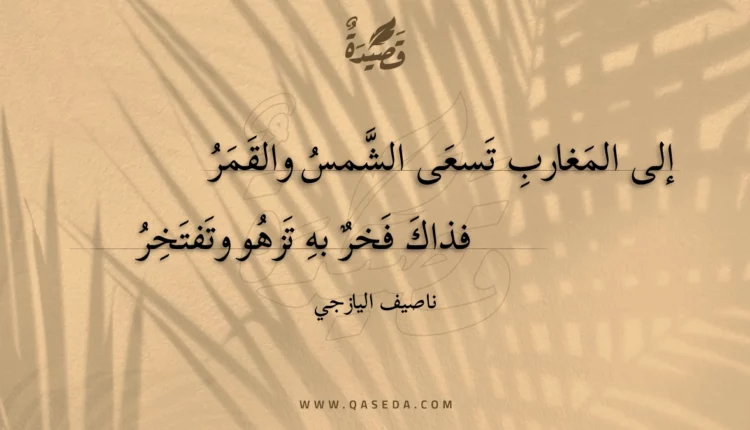 قَصِيْدَةٌ
إلى المَغاربِ تَسعَى الشَّمسُ والقَمَرُ
فذاكَ فَخرٌ بهِ تَزهُو وتَفتَخِرُ
ناصيف اليازجي
WWW.QASEDA.COM